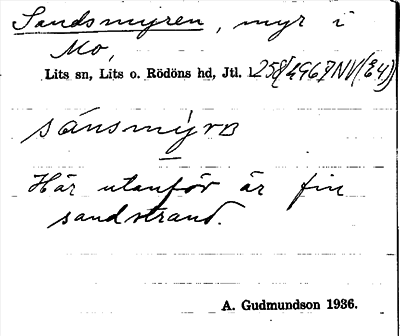 Sandsmyren, myr i
Mo,
Lits sn, Lits o. Rödöns hd, Jtl. 1258/4967NV(E4)
sánsmýrɐ
Här utanför är fin
sandstrand.
A. Gudmundson 1936.